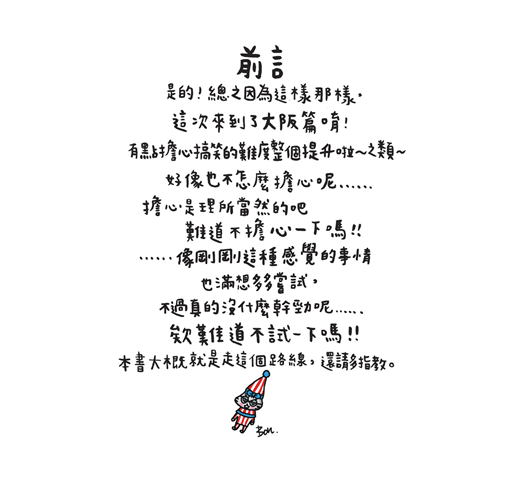 前言
是的！總之因為這樣那樣，
這次來到了大阪篇唷！
有點擔心搞笑的難度整個提升啦～之類～
好像也不怎麼擔心呢……
擔心是理所當然的吧
難道不擔心一下嗎!!
……像剛剛這種感覺的事情
也滿想多多嘗試，
不過真的沒什麼幹勁呢……
欸難道不試一下嗎!!
本書大概就是走這個路線，還請多指教。